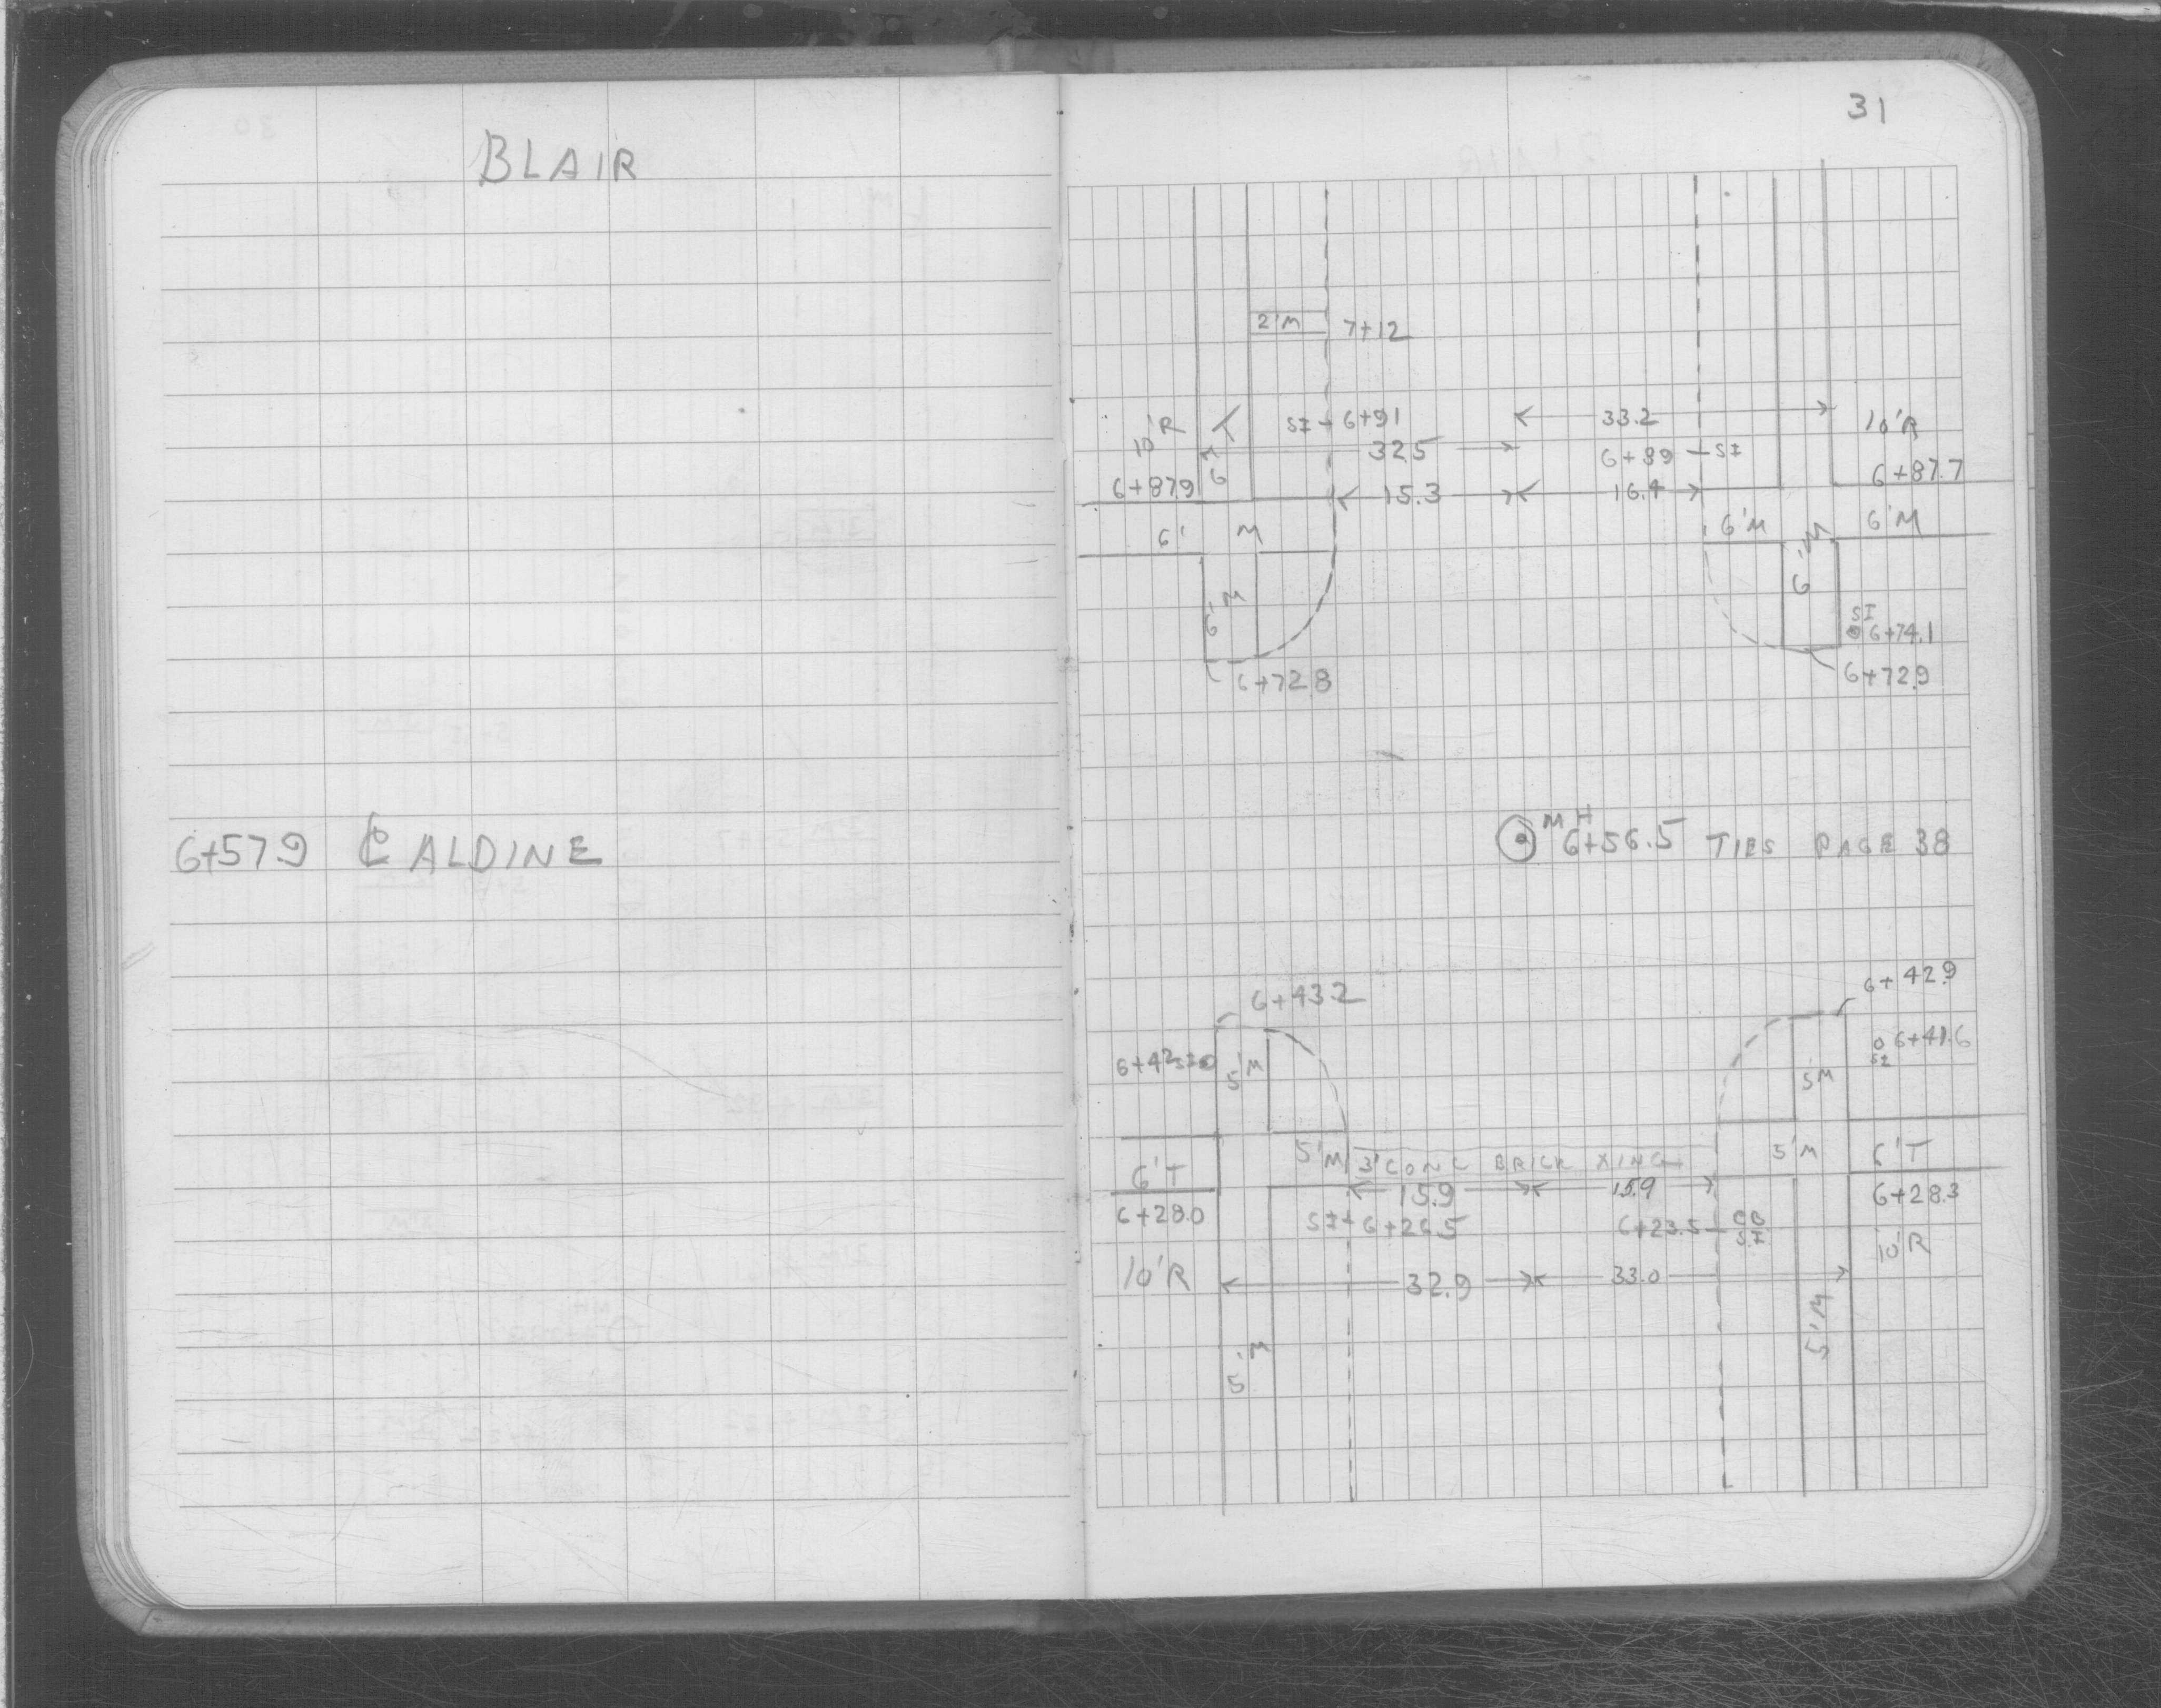 BLAIR
6+57.9 ℄ ALDINE
31
2'M 7+12
SI 6+91 33.2
10'R T 10'R
32.5 6+89 SI
6+87.9 6' 15.3 16.4 6+87.7
6' M 6'M 'M 6'M
6'M 6
SI
6+74.1
6+72.8 6+72.9
MH
6+56.5 TIES PAGE 38
6+43.2 6+42.9
6+42 SI 5'M 6+41.6
SI
5'M
5'M 3' CONC BRICK XING 5'M 6'T
6'T 15.9 15.9 6+28.3
6+28.0 SI 6+26.5 6+23.5 CB
SI
10'R
10'R 32.9 33.0
5'M 5'M